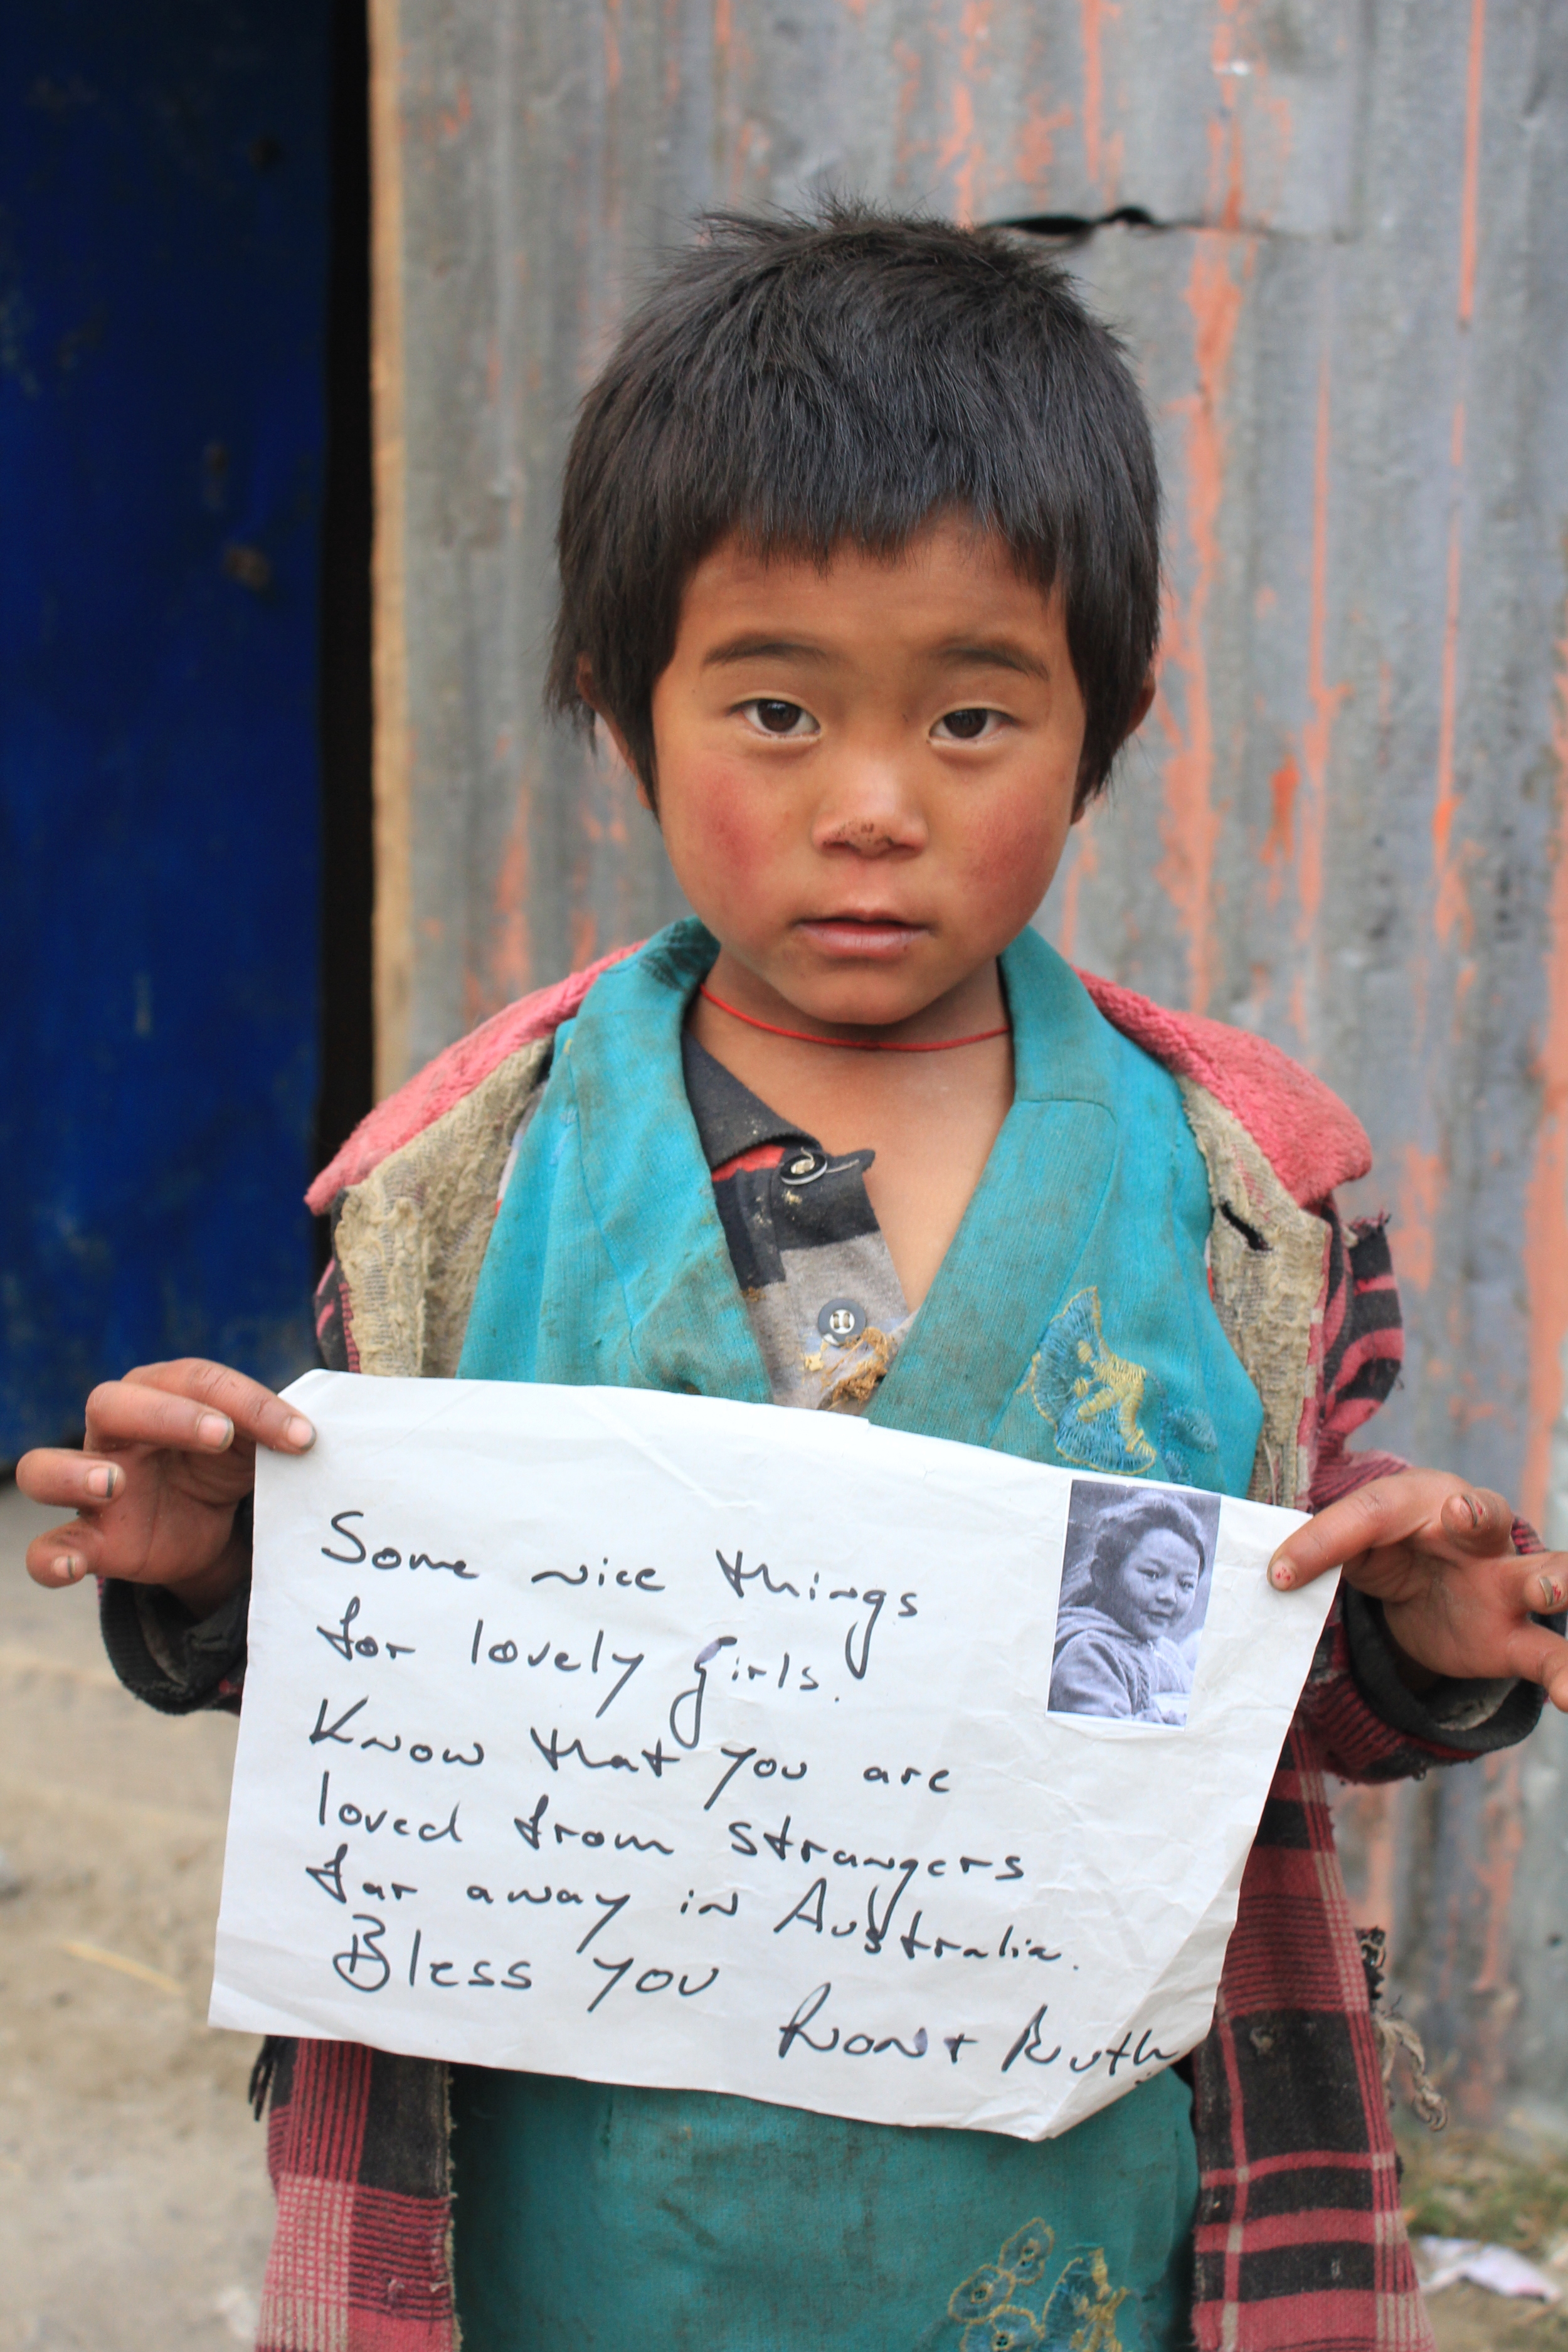 Some nice things
for lovely girls.
Know that you are
loved from strangers
far away in Australia.
Bless you
Ron + Ruth